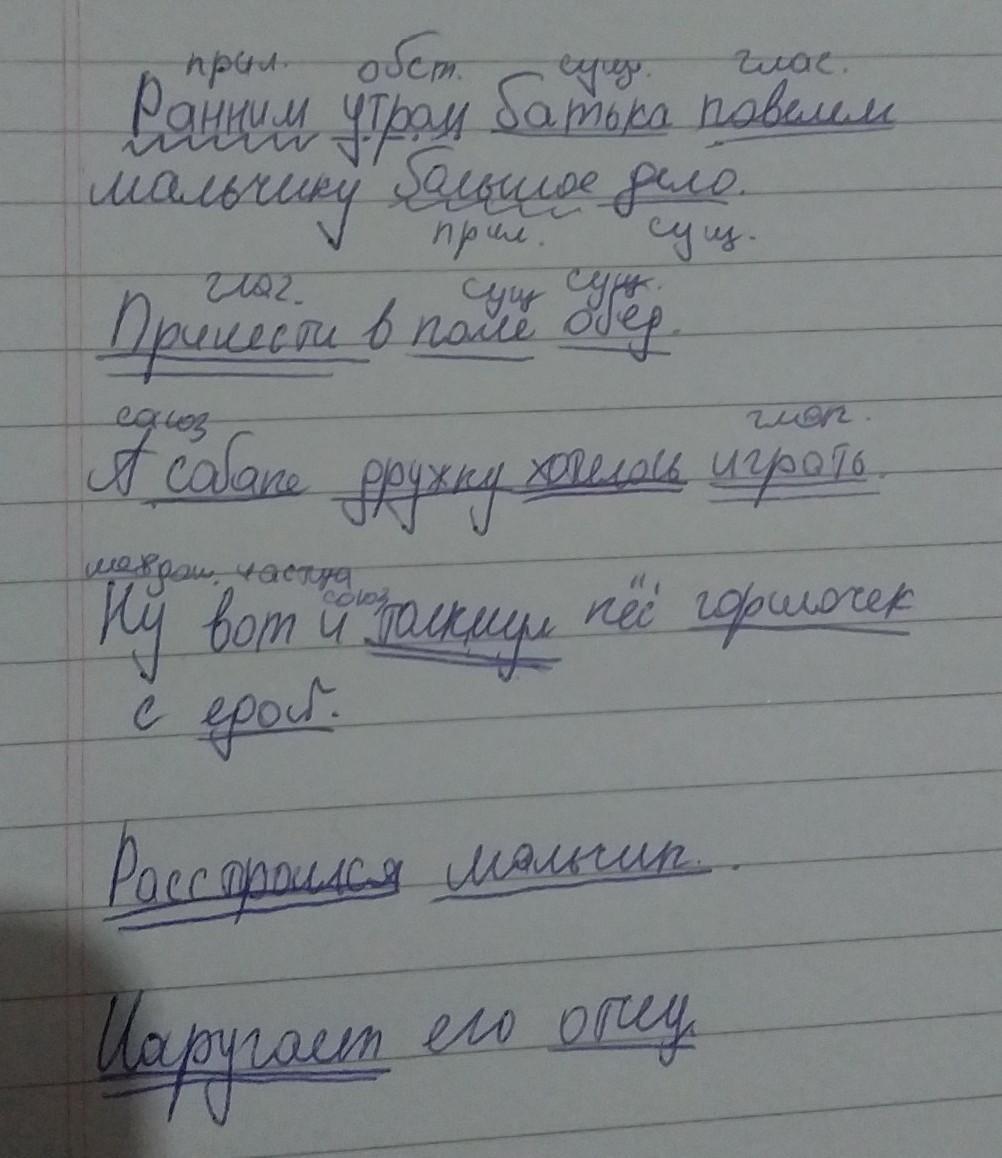 прил. обст. сущ. глаг.
Ранним утром батька повелел
мальчику большое дело.
прил. сущ.
глаг. сущ сущ.
Принести в поле обед.
союз глаг.
А собаке дружку хотелось играть.
междом. частица союз
Ну вот и толкнул пёс горшочек
с едой.
Расстроился мальчик.
Наругает его отец.